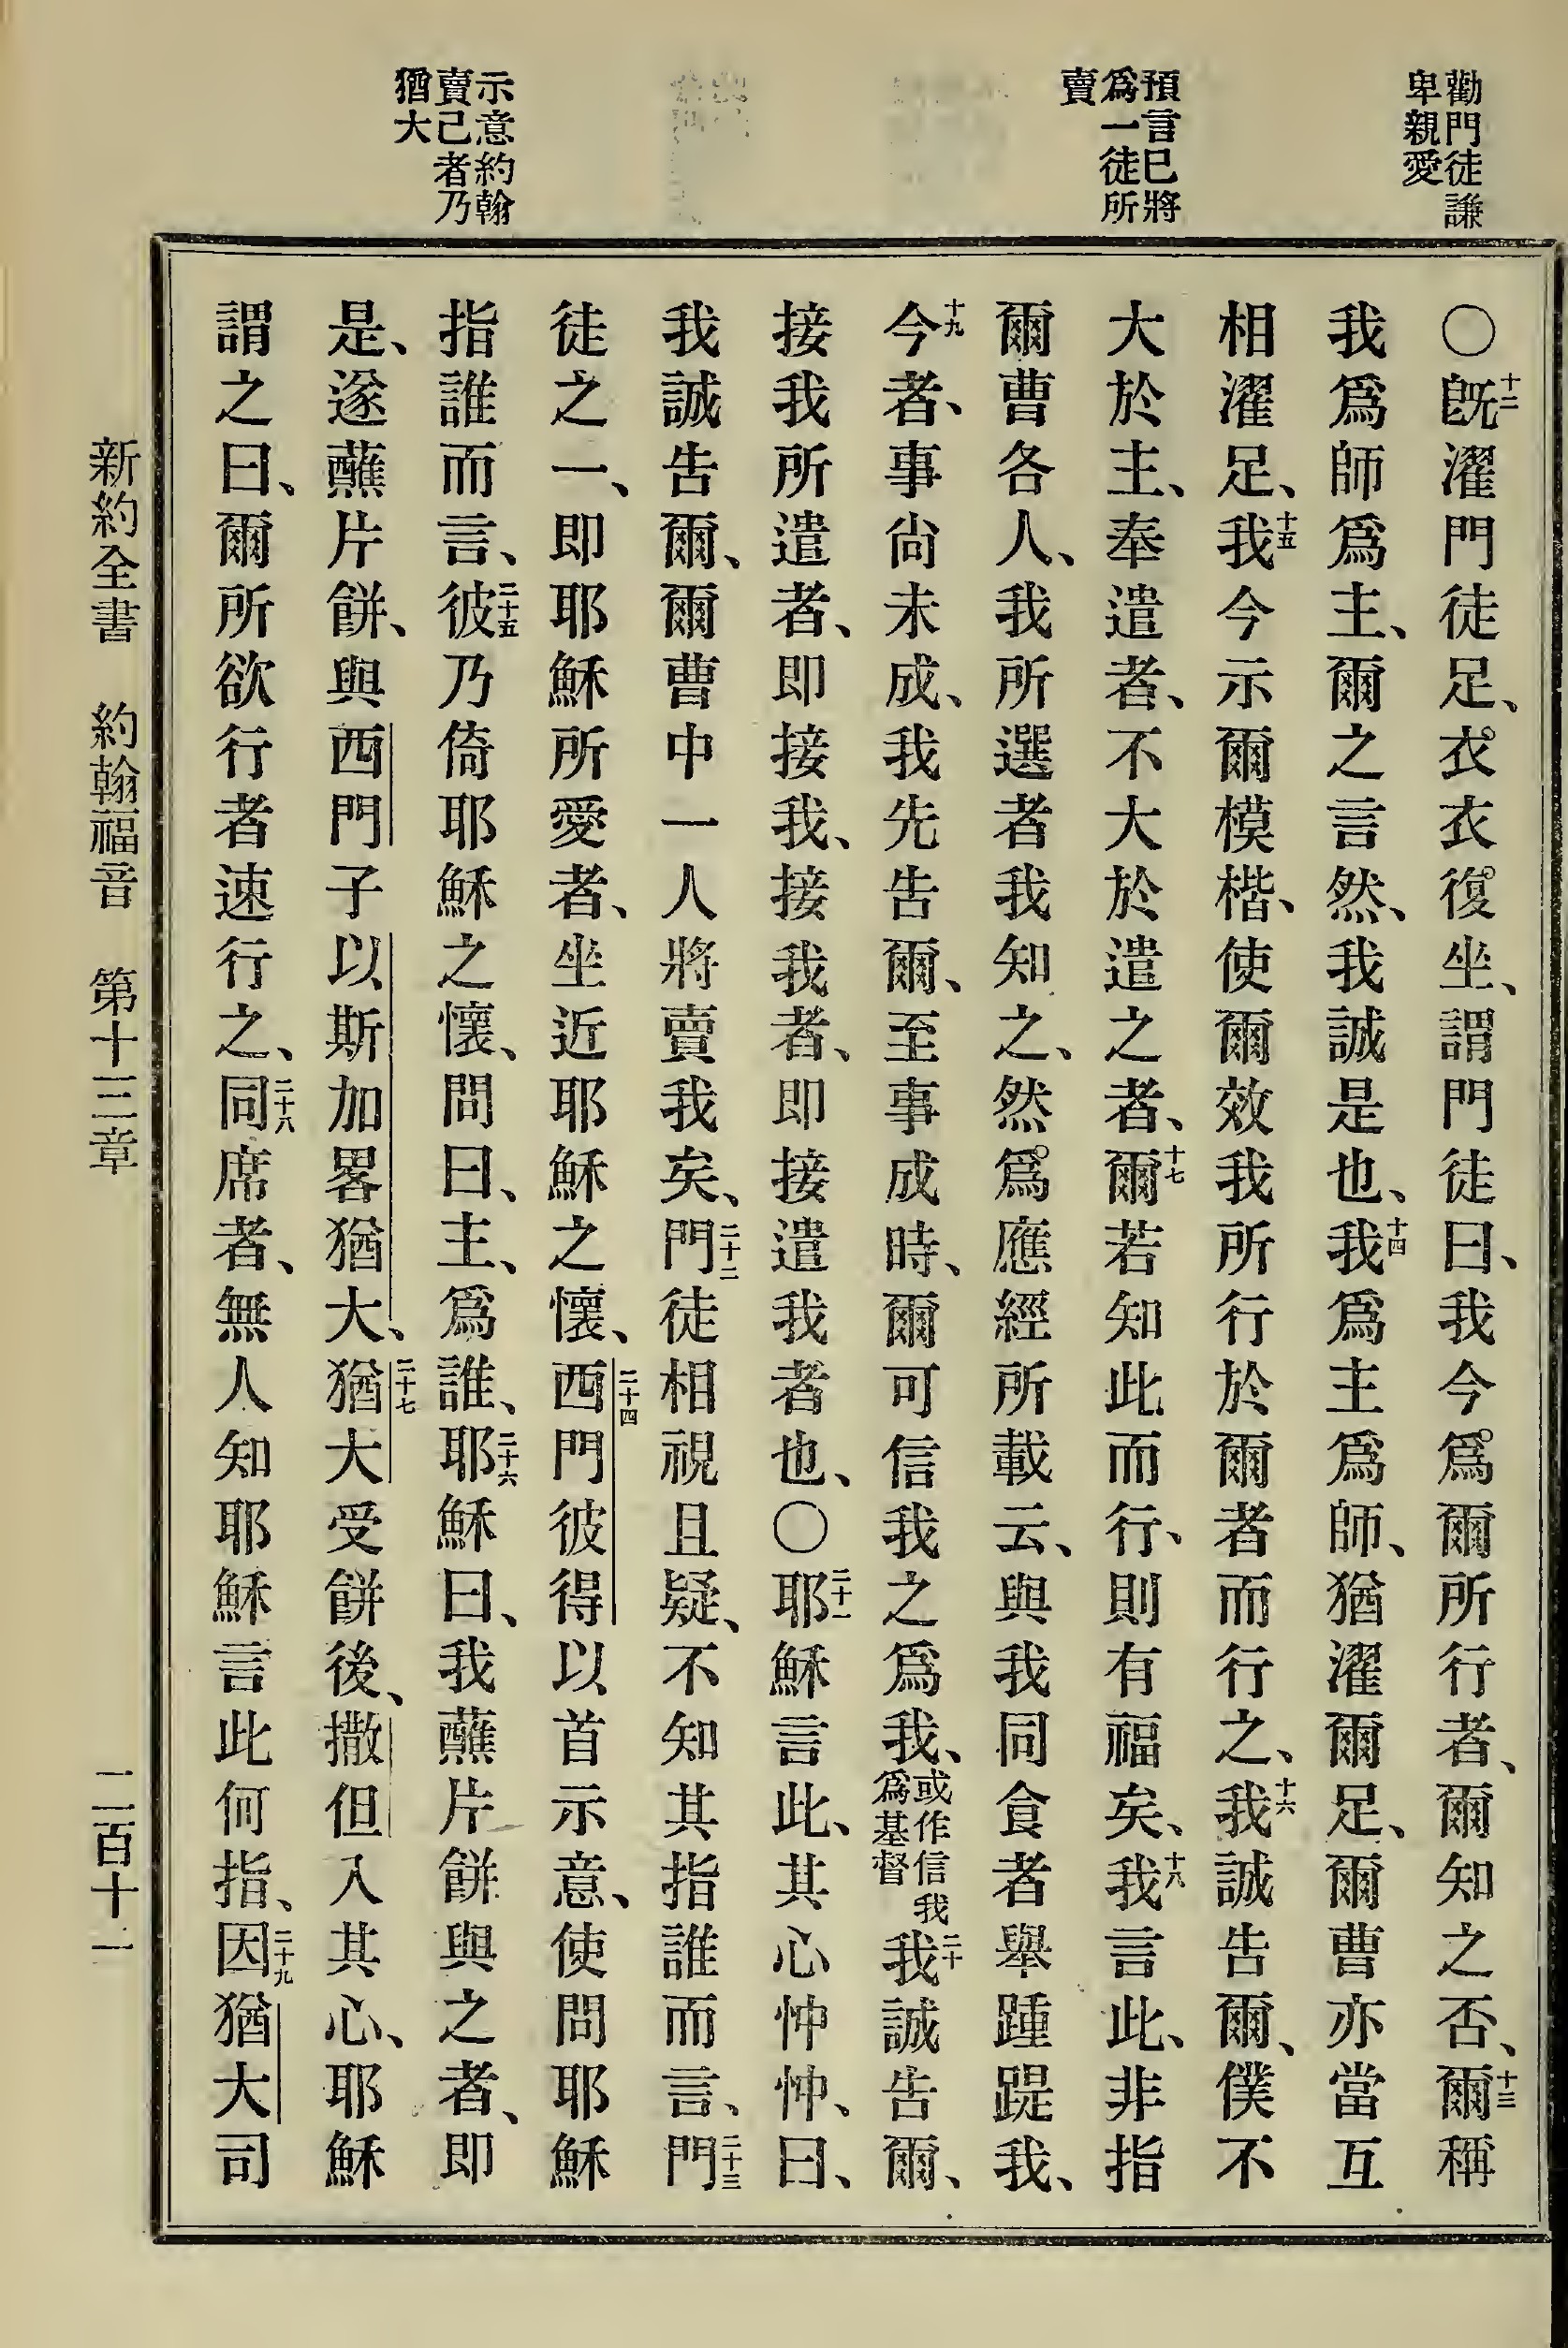 勸門徒謙
卑親愛
預言已將
爲一徒所
賣
示意約翰
賣己者乃
猶大
○十二旣濯門徒足、衣衣復坐、謂門徒曰、我今爲爾所行者、爾知之否、十三爾稱
我爲師爲主、爾之言然、我誠是也、十四我爲主爲師、猶濯爾足、爾曹亦當互
相濯足、十五我今示爾模楷、使爾效我所行於爾者而行之、十六我誠告爾、僕不
大於主、奉遣者、不大於遣之者、十七爾若知此而行、則有福矣、十八我言此、非指
爾曹各人、我所選者我知之、然爲應經所載云、與我同食者舉踵踶我、
十九今者、事尙未成、我先告爾、至事成時、爾可信我之爲我、或作信我爲基督二十我誠告爾、
接我所遣者、即接我、接我者、即接遣我者也、○二十一耶穌言此、其心忡忡、曰、
我誠告爾、爾曹中一人將賣我矣、二十二門徒相視且疑、不知其指誰而言、二十三門
徒之一、即耶穌所愛者、坐近耶穌之懷、二十四西門彼得以首示意、使問耶穌
指誰而言、二十五彼乃倚耶穌之懷、問曰、主、爲誰、二十六耶穌曰、我蘸片餅與之者、即
是、遂蘸片餅、與西門子以斯加畧猶大、二十七猶大受餅後、撒但入其心、耶穌
謂之曰、爾所欲行者速行之、二十八同席者、無人知耶穌言此何指、二十九因猶大司
新約全書 約翰福音 第十三章 二百十一